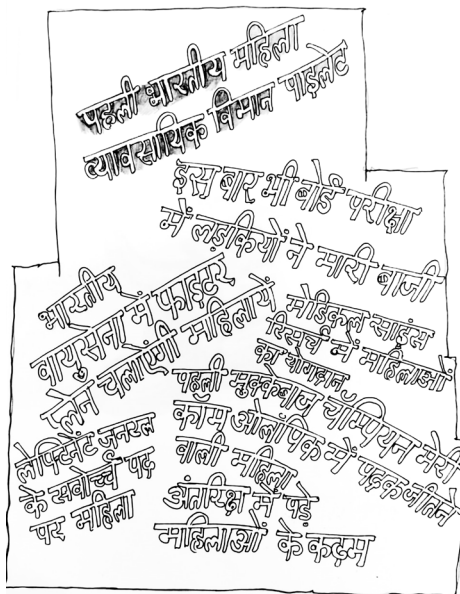 पहली भारतीय महिला
व्यावसायिक विमान पाइलेट
इस बार भी बोर्ड परीक्षा
में लड़कियों ने मारी बाजी
भारतीय
वायुसेना में फाइटर
प्लेन चलाएंगी महिलायें
मेडिकल साइंस
रिसर्च में महिलाओं
का योगदान
पहली मुक्केबाज चॅम्पियन मेरी
काम ओलंपिक में पदक जीतने
वाली महिला
लेफ्टिनेंट जनरल
के सर्वोच्च पद
पर महिला
अंतरिक्ष में पड़े
महिलाओं के कदम